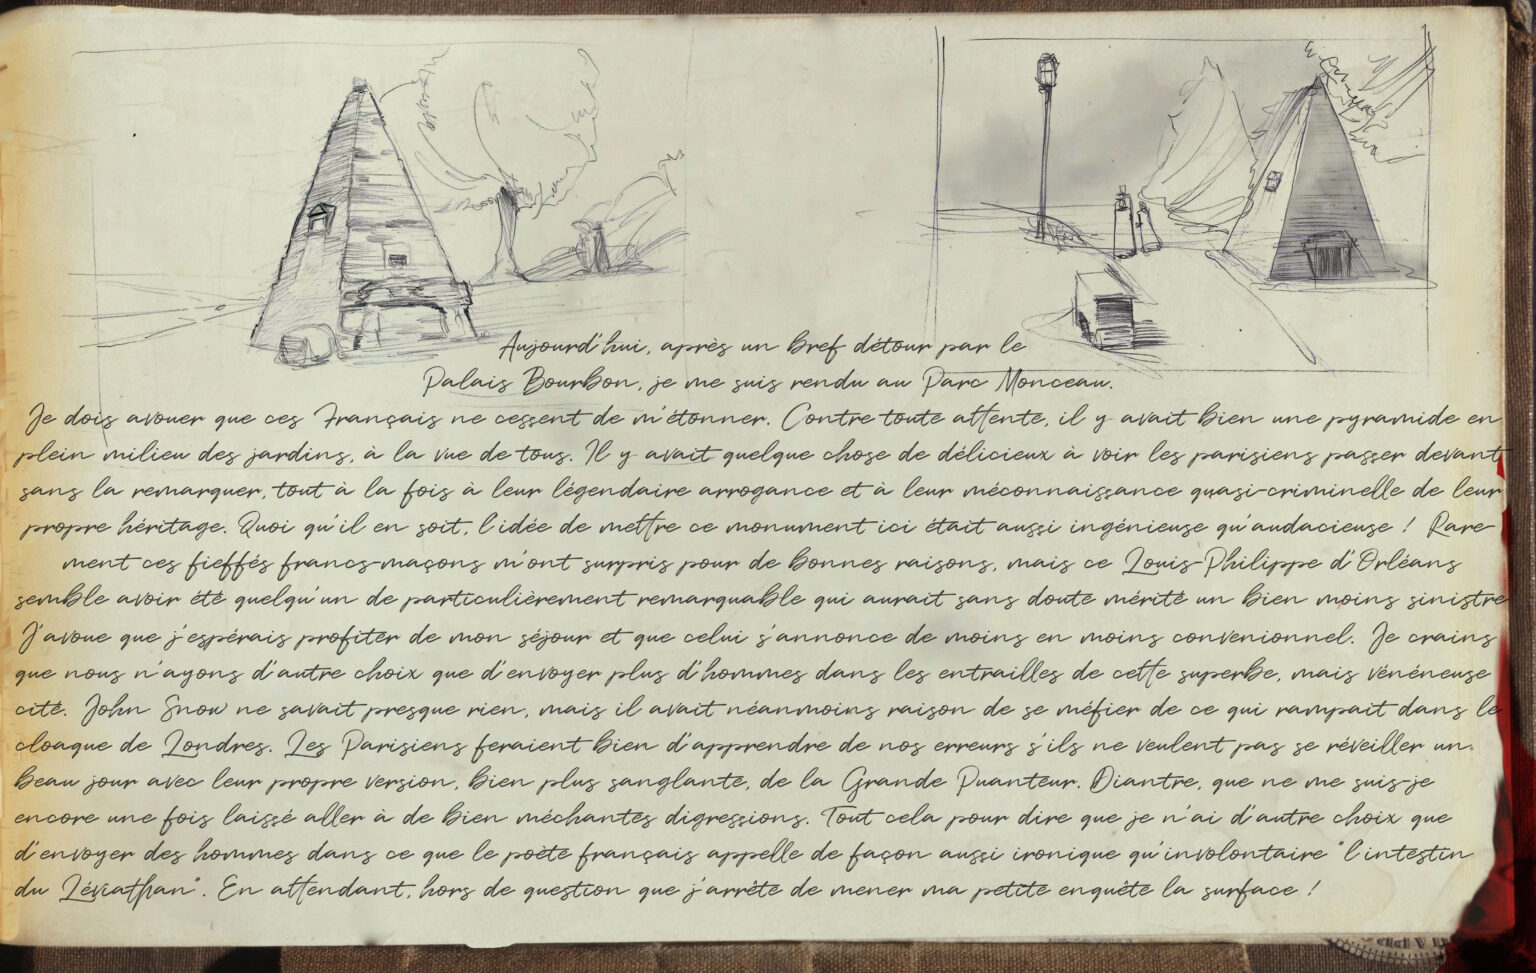 Aujourd'hui, après un bref détour par le
Palais Bourbon, je me suis rendu au Parc Monceau.
Je dois avouer que ces Français ne cessent de m'étonner. Contre toute attente, il y avait bien une pyramide en
plein milieu des jardins, à la vue de tous. Il y avait quelque chose de délicieux à voir les parisiens passer devant
sans la remarquer, tout à la fois à leur légendaire arrogance et à leur méconnaissance quasi-criminelle de leur
propre héritage. Quoi qu'il en soit, l'idée de mettre ce monument ici était aussi ingénieuse qu'audacieuse ! Rare-
ment ces fieffés francs-maçons m'ont surpris pour de bonnes raisons, mais ce Louis-Philippe d'Orléans
semble avoir été quelqu'un de particulièrement remarquable qui aurait sans doute mérité un bien moins sinistre
J'avoue que j'espérais profiter de mon séjour et que celui s'annonce de moins en moins convenionnel. Je crains
que nous n'ayons d'autre choix que d'envoyer plus d'hommes dans les entrailles de cette superbe, mais vénéneuse
cité. John Snow ne savait presque rien, mais il avait néanmoins raison de se méfier de ce qui rampait dans le
cloaque de Londres. Les Parisiens feraient bien d'apprendre de nos erreurs s'ils ne veulent pas se réveiller un
beau jour avec leur propre version, bien plus sanglante, de la Grande Puanteur. Diantre, que ne me suis-je
encore une fois laissé aller à de bien méchantes digressions. Tout cela pour dire que je n'ai d'autre choix que
d'envoyer des hommes dans ce que le poète français appelle de façon aussi ironique qu'involontaire "l'intestin
du Léviathan". En attendant, hors de question que j'arrête de mener ma petite enquête la surface !